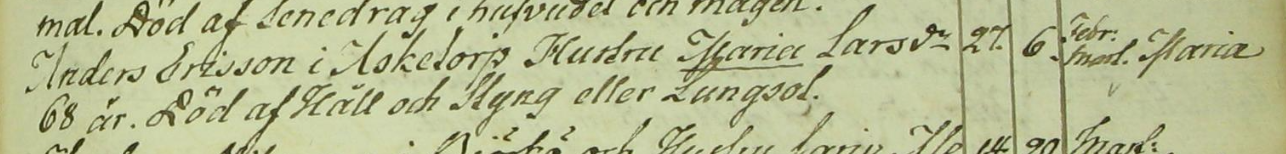 mal. Död af Senedrag i hufvudet och magen.
Anders Ersson i Asketorp Hustru Maria Larsdr 27. 6 Febr: Marl. Maria
68 år. Död af Håll och Styng eller Lungsot.
och Hustru 14 20 Marl: